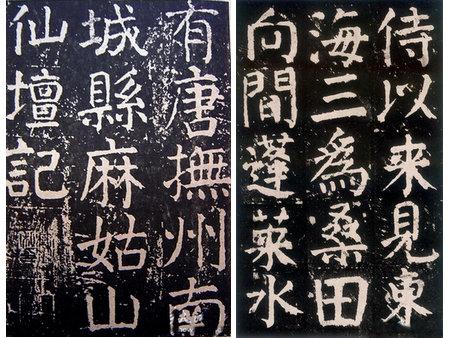 有唐撫州南
城縣麻姑山
仙壇記
侍以来見東
海三為桑田
向間蓬莱水